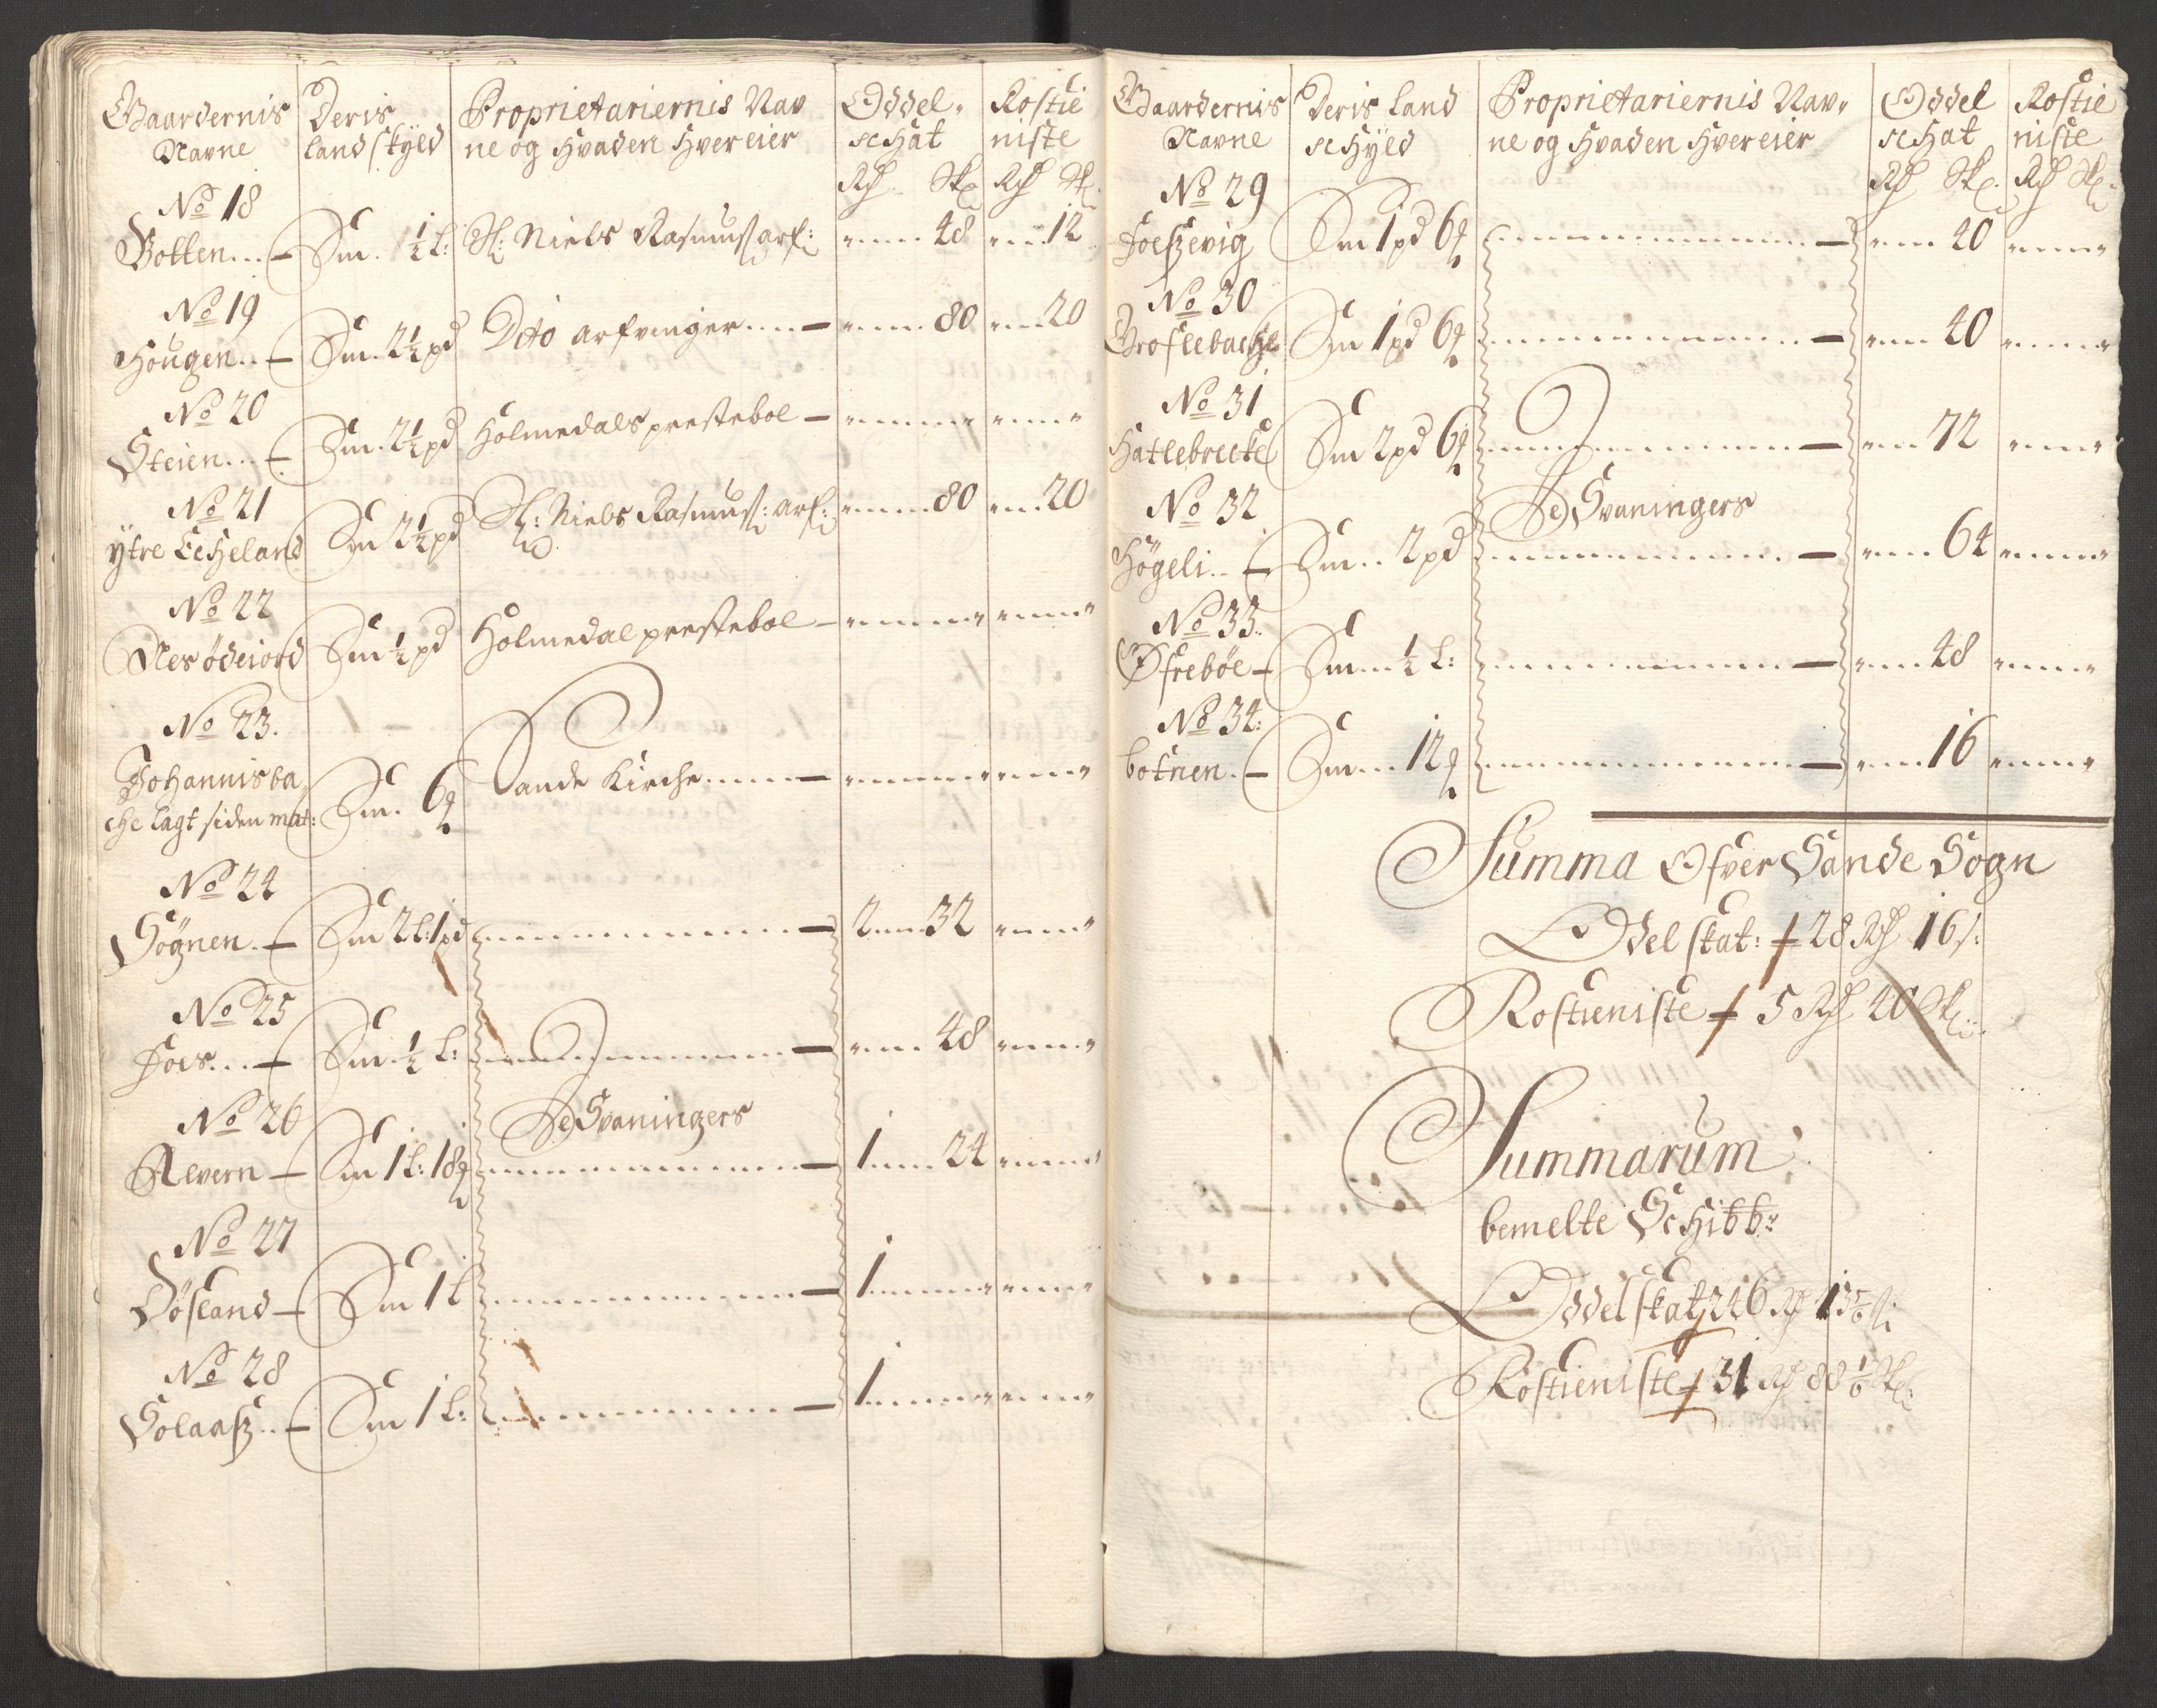 Gaardernis Navne | Deris landskyld | Proprietariernis Navne og Hvad en Hver eier | Oddel scHat | Rostieniste
Rd Sk | Rd Sk
No 18
Botten — Sm. ½ L: | Sl: Niels Rasmuss arf: | 48 | 12
No 19
Hougen — Sm. 2½ pd | Dito arfvinger — | 80 | 20
No 20
Steien — Sm. 2½ pd | Holmedals prestebol —
No 21
ytre EcHeland | Sm 2½ pd | Sl: Niels Rasmuss: arf: | 80 | 20
No 22
Nes ödeiord | Sm ½ pd | Holmedal prestebol —
No 23.
Johannisba
che lagt siden mat: | Sm. 6 | Sande Kirche —
No 24
Sögnen — Sm 2 L: 1 pd | — | 2 32
No 25
Foss — Sm ½ L: | — | 48
De Svaningers
No 26
Alvern — Sm 1 L: 18 | — | 1 24
No 27
Dösland — Sm 1 L | — | 1
No 28
Solaasz — Sm 1 L: | — | 1
Gaardernis Navne | Deris land scHyld | Proprietariernis Navne og Hvad en Hver eier | Oddel scHat | Rostieniste
Rd Sk | Rd Sk
No 29
Foeszevig | Sm 1 pd 6 | — | 40
No 30
Groslebache | Sm 1 pd 6 | — | 40
No 31
Hatlebrecke | Sm 2 pd 6 | — | 72
De Svaningers
No 32
Högeli — Sm 2 pd | — | 64
No 33.
Ofreböe — Sm ½ L: | — | 48
No 34:
botnen. — Sm 12 | — | 16
Summa Ofver Sande Sogn
Odel skat: 28 Rd 16 s:
Rostieniste 5 Rd 20 Sk
Summarum
bemelte ScHibb:
Oddel skat 216 Rd
Rostieniste 31 Rd